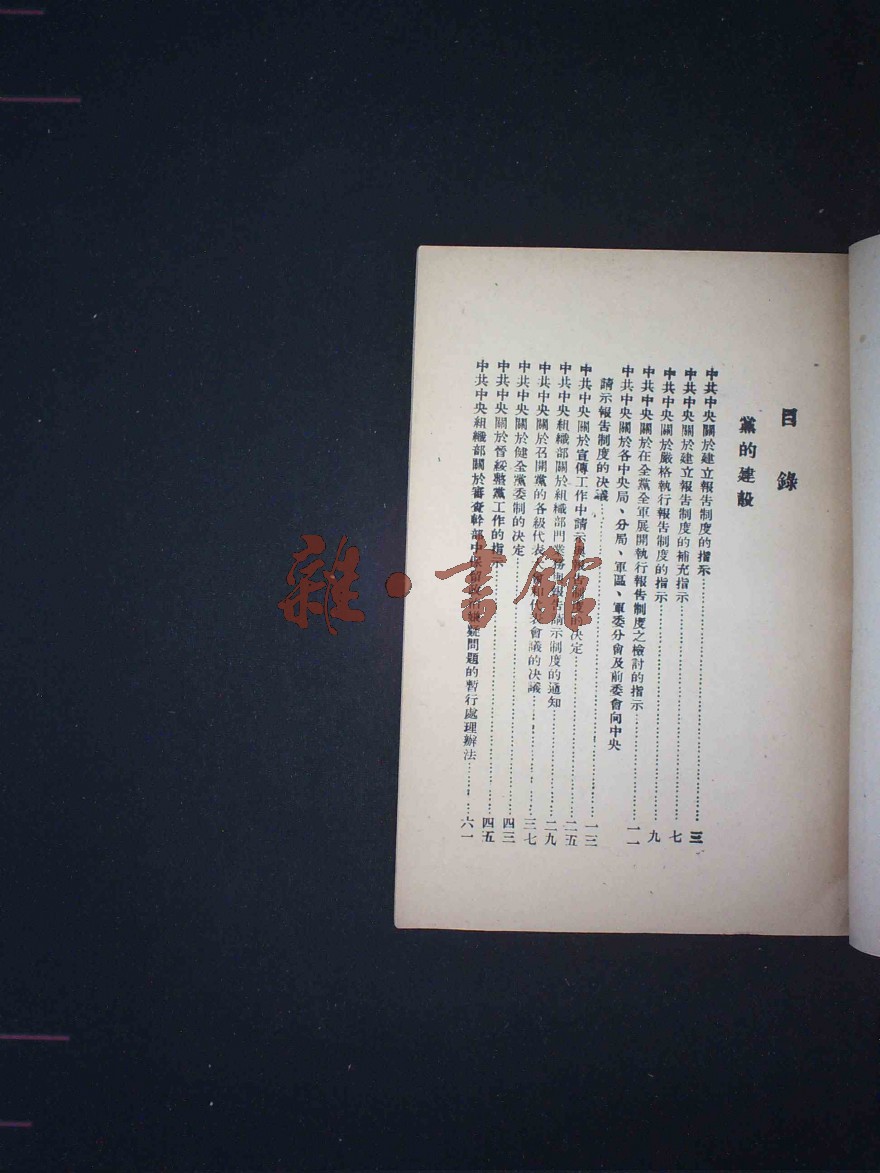 目錄
黨的建設
中共中央關於建立報告制度的指示…………三
中共中央關於建立報告制度的補充指示…………七
中共中央關於嚴格執行報告制度的指示…………九
中共中央關於在全黨全軍展開執行報告制度之檢討的指示…………一一
中共中央關於各中央局、分局、軍區、軍委分會及前委會向中央
請示報告制度的決議…………一三
中共中央關於宣傳工作中請示與報告制度的決定…………二五
中共中央組織部關於組織部門業務與報告請示制度的通知…………二九
中共中央關於召開黨的各級代表大會和代表會議的決議…………三七
中共中央關於健全黨委制的決定…………四三
中共中央關於晉綏整黨工作的指示…………四五
中共中央組織部關於審查幹部中保留政治嫌疑問題的暫行處理辦法…………六一
雜·書館